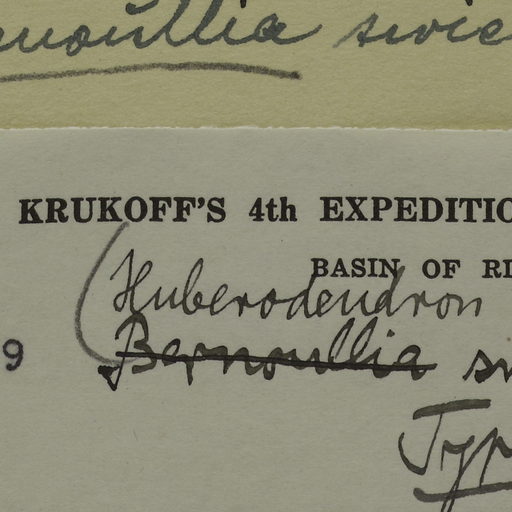 Bernoullia swie
KRUKOFF'S 4th EXPEDITIO
BASIN OF RI
Huberodendron
9 Bernoullia sw
Typ